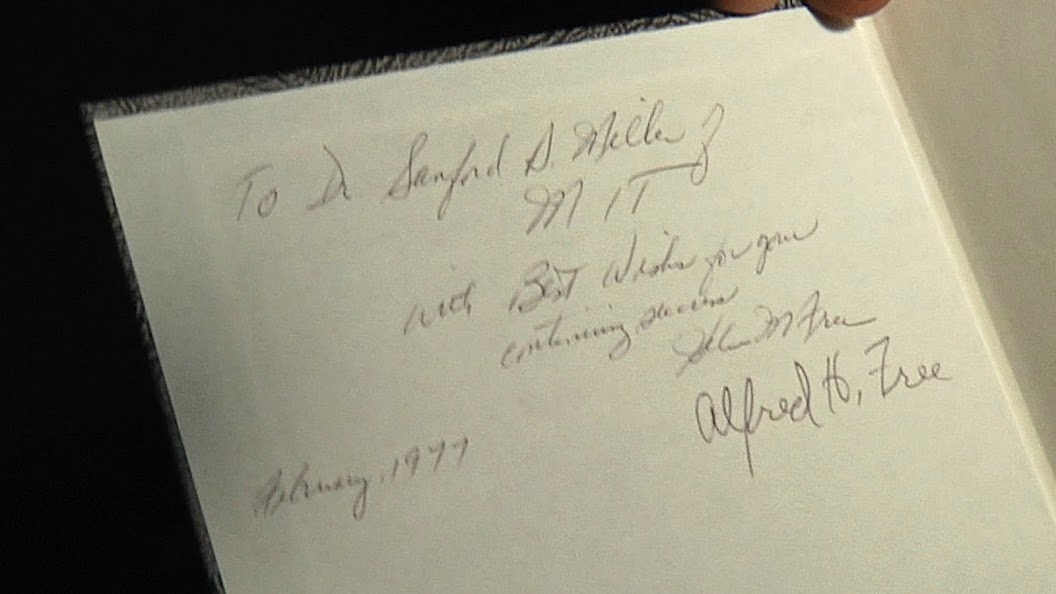 To Dr Sanford A. Miller
MIT
with Best Wishes for your
continuing success
Helen M Free
Alfred H. Free
February, 1977